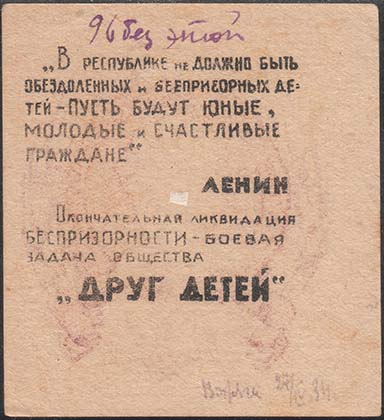 96 без этой
„В РЕСПУБЛИКЕ НЕ ДОЛЖНО БЫТЬ
ОБЕЗДОЛЕННЫХ И БЕСПРИЗОРНЫХ ДЕ-
ТЕЙ – ПУСТЬ БУДУТ ЮНЫЕ,
МОЛОДЫЕ И СЧАСТЛИВЫЕ
ГРАЖДАНЕ“
ЛЕНИН
ОКОНЧАТЕЛЬНАЯ ЛИКВИДАЦИЯ
БЕСПРИЗОРНОСТИ – БОЕВАЯ
ЗАДАЧА ОБЩЕСТВА
„ДРУГ ДЕТЕЙ“